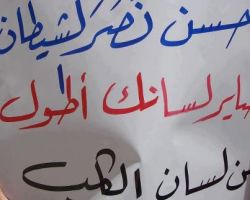 حسن نصر الشيطان
صاير لسانك أطول
من لسان الكلب